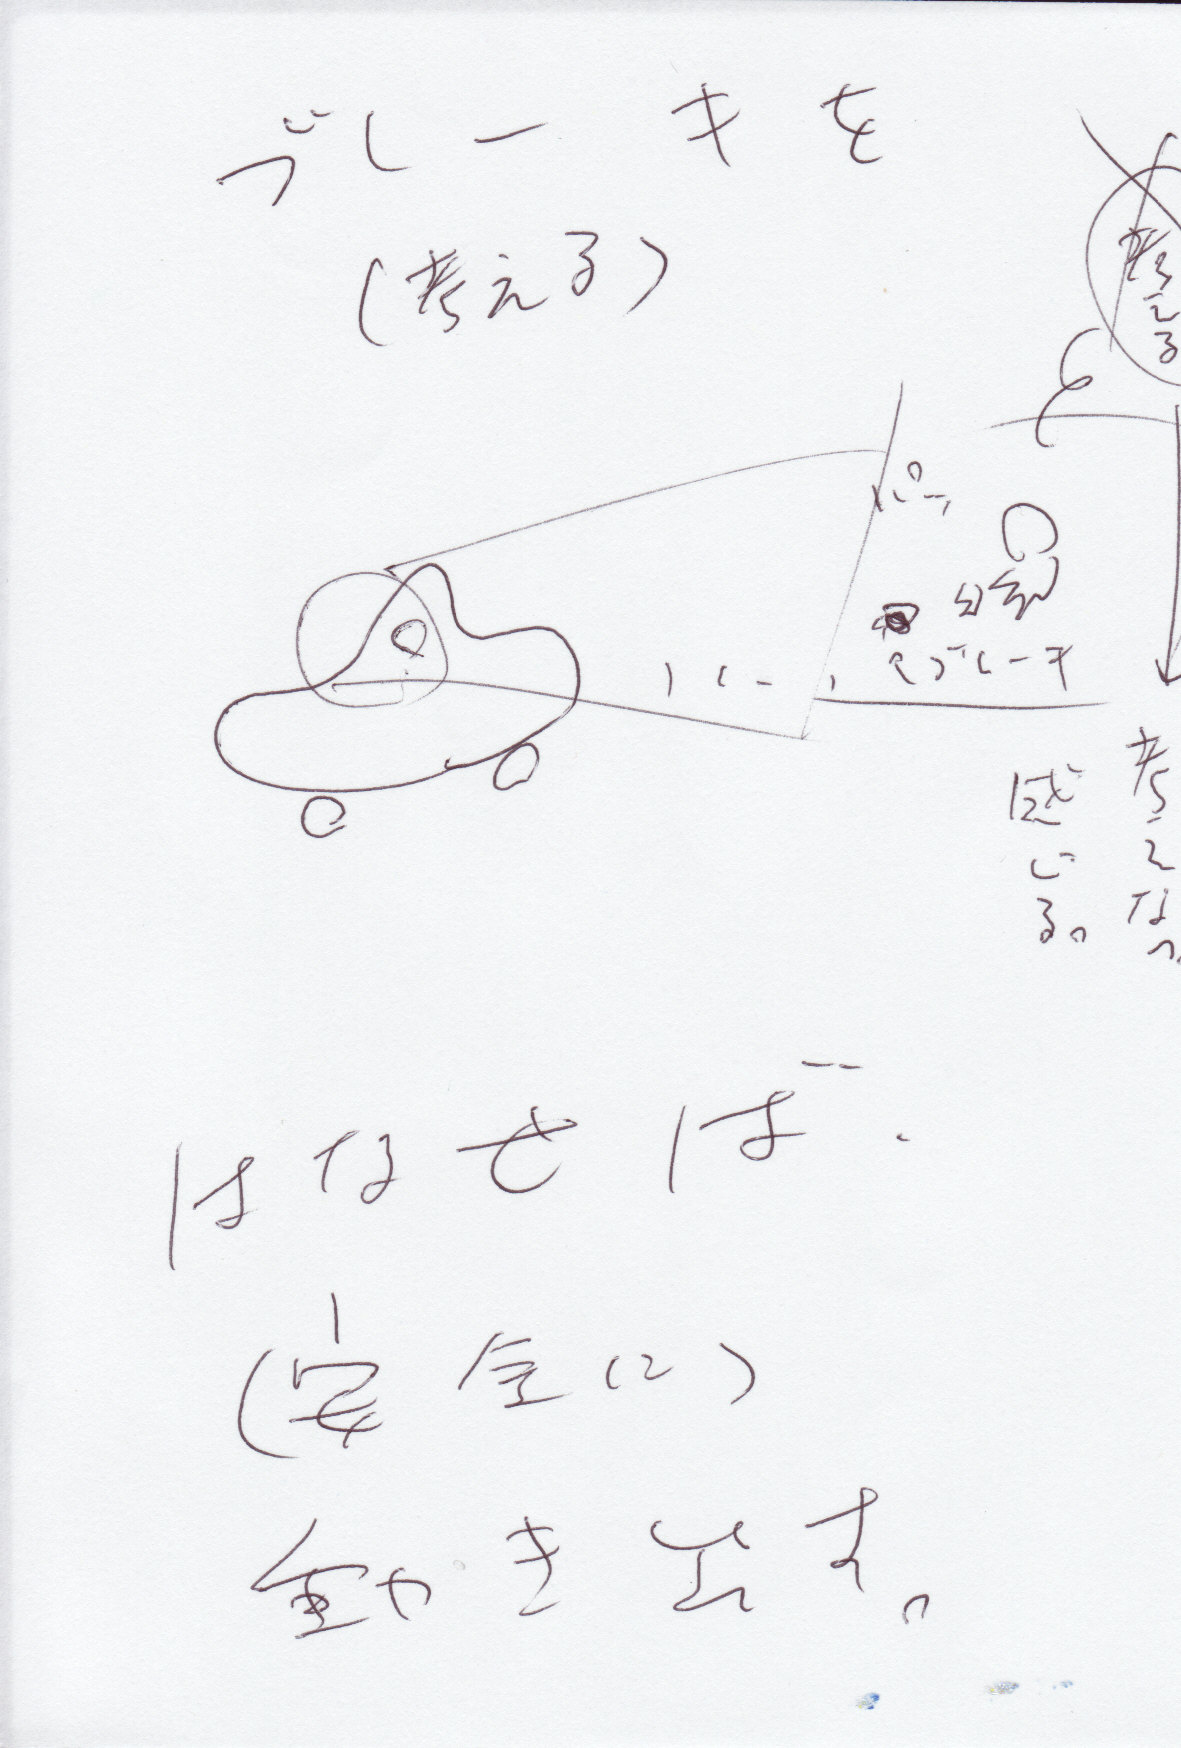 ブレーキを
(考える)
考える
ブレーキ
考えな
感じる。
はなせば、
(安全に)
動き出す。